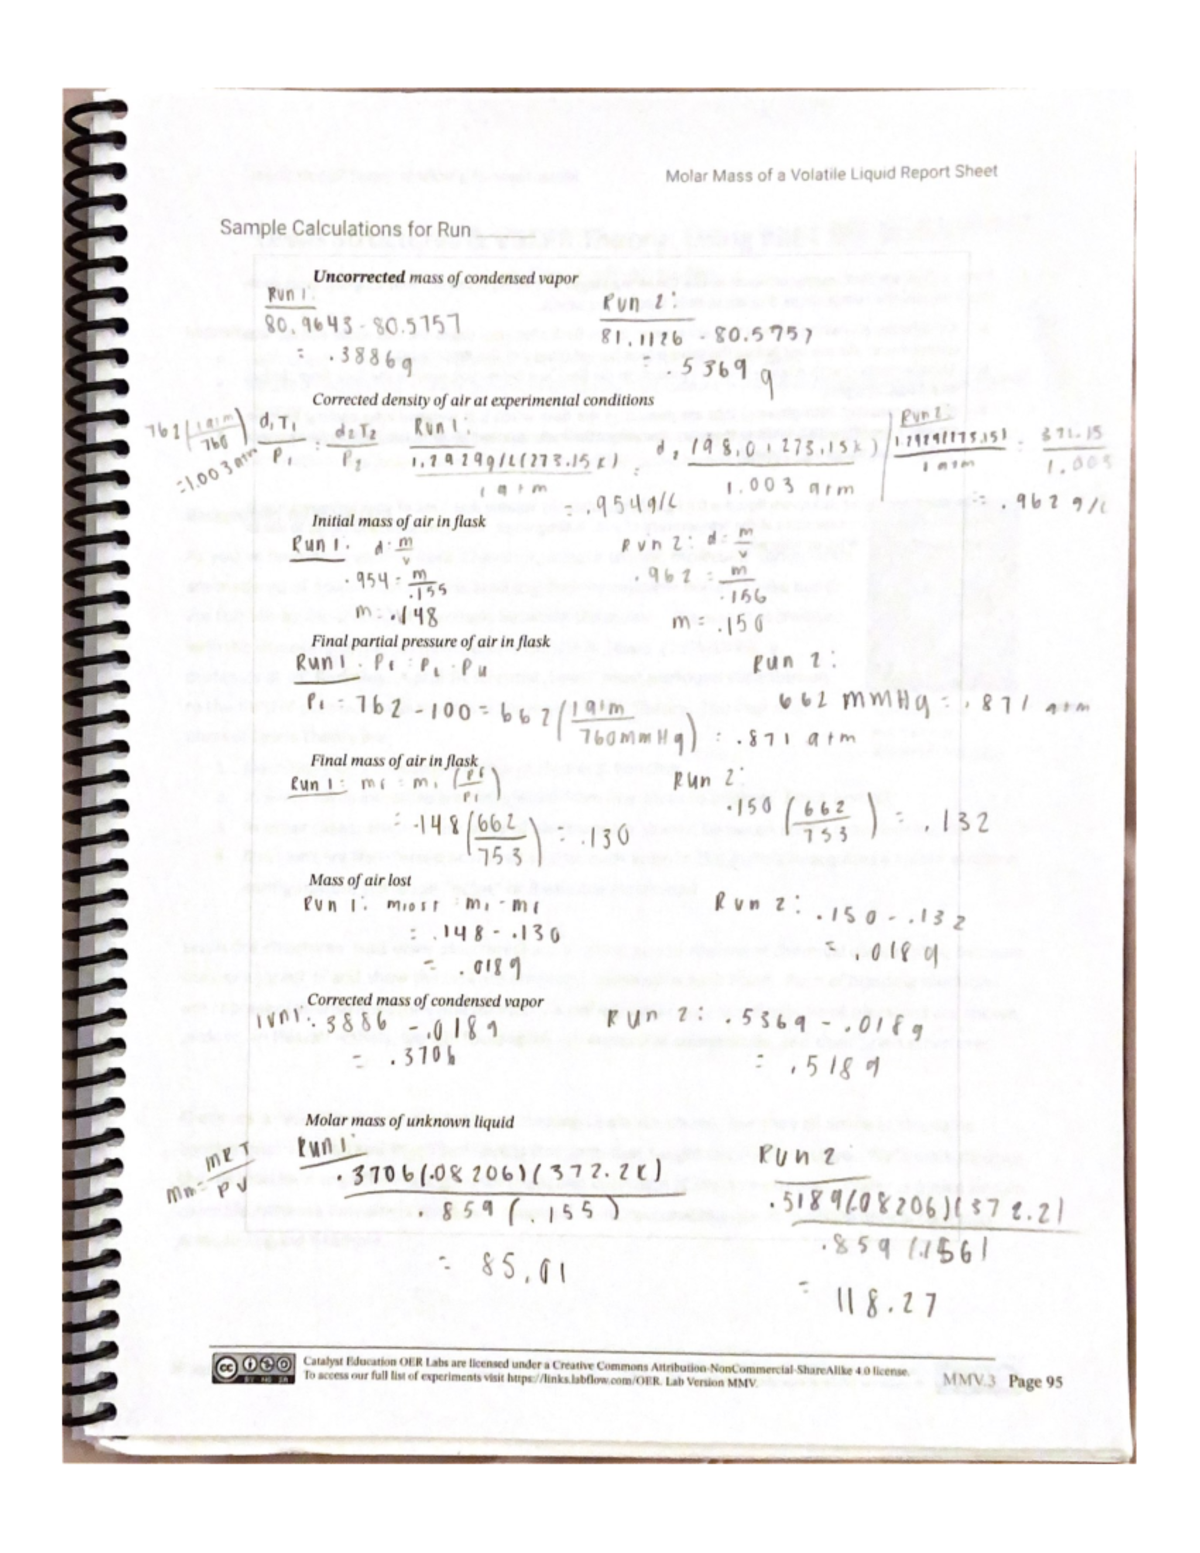 Molar Mass of a Volatile Liquid Report Sheet
Sample Calculations for Run
Uncorrected mass of condensed vapor
Run 1: Run 2:
80.9643 - 80.5757 81.1126 - 80.5757
= .3886g = .5369 g
Corrected density of air at experimental conditions
762 (1 atm / 760) = 1.003 atm
d1T1 / P1 = d2T2 / P2
Run 1: 1.2929g/L(273.15 K) / 1 atm = d2 (98.0 + 273.15K) / 1.003 atm
= .954g/L
Run 2: 1.2929(273.15) / 1 atm = 371.15 / 1.003
= .962 g/L
Initial mass of air in flask
Run 1: d = m/v Run 2: d = m/v
.954 = m/.155 .962 = m/.156
m = .148 m = .150
Final partial pressure of air in flask
Run 1 Run 2:
Pf = 762 - 100 = 662 (1 atm / 760 mmHg) = .871 atm 662 mmHg = .871 atm
Final mass of air in flask
Run 1: mf = mi (Pf / Pi) Run 2:
= .148 (662 / 753) = .130 .150 (662 / 753) = .132
Mass of air lost
Run 1: mlost = mi - mf Run 2: .150 - .132
= .148 - .130 = .018 g
= .018g
Corrected mass of condensed vapor
.3886 - .018g Run 2: .5369 - .018g
= .3706 = .518g
Molar mass of unknown liquid
Mm = MRT / PV
Run 1: Run 2:
.3706(.08206)(372.2K) / .859 (.155) .5189(.08206)(372.2) / .859 (.156)
= 85.01 = 118.27
Catalyst Education OER Labs are licensed under a Creative Commons Attribution-NonCommercial-ShareAlike 4.0 license.
To access our full list of experiments visit https://links.labflow.com/OER. Lab Version MMV.
MMV.3 Page 95